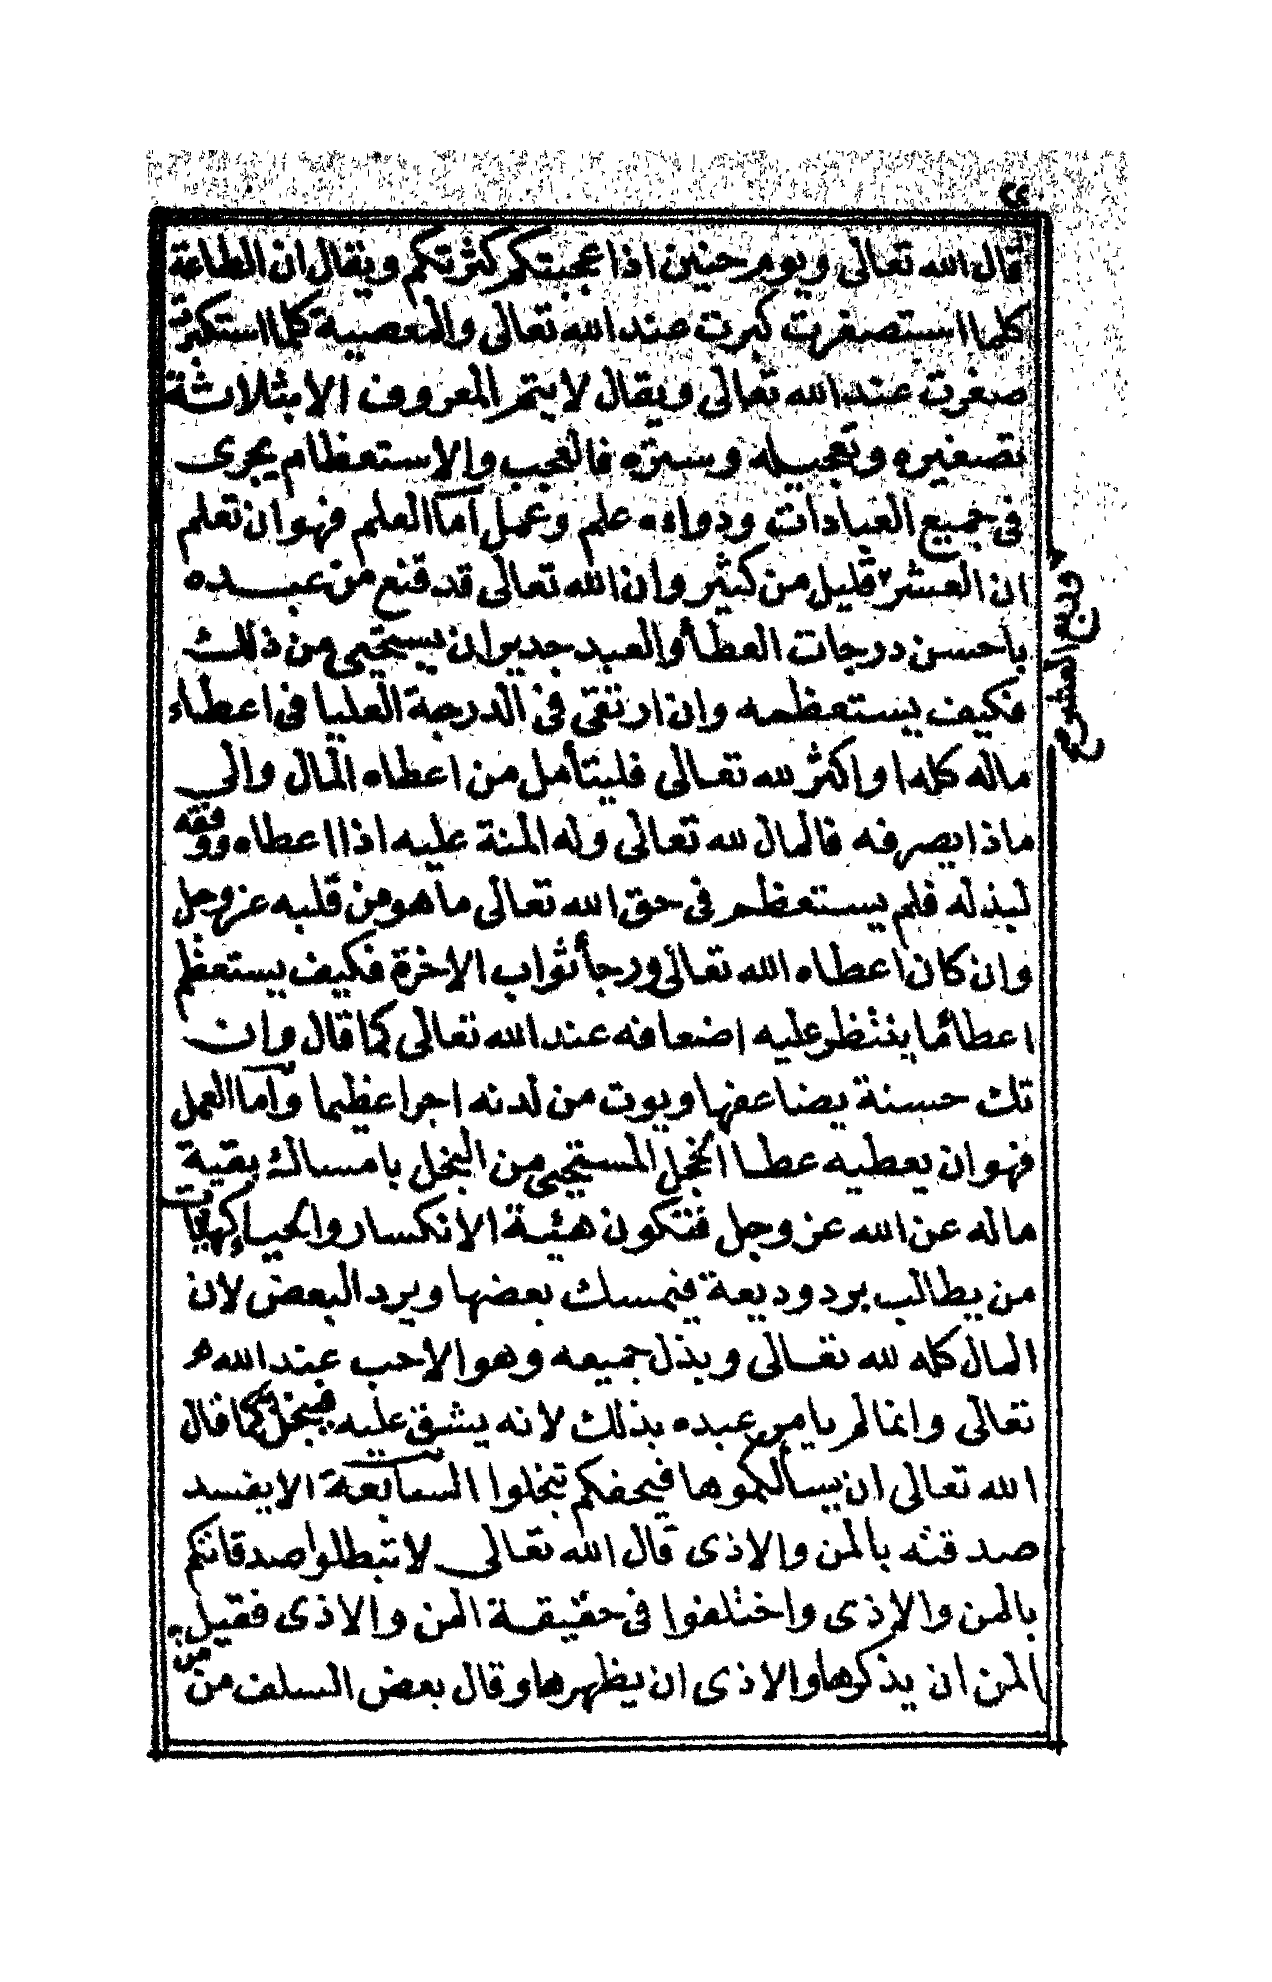 قال الله تعالى ويوم حنين اذ اعجبتكم كثرتكم ويقال ان الطاعة
كلما استصغرت كبرت عند الله تعالى والمعصية كلما استكبرت
صغرت عند الله تعالى ويقال لا يتم المعروف الا بثلاثة
تصغيره وتعجيله وستره فالعجب والاستعظام يجرى
فى جميع العبادات ودواءه علم وعمل اما العلم فهو ان تعلم
ان العشر قليل من كثير وان الله تعالى قد قنع من عبده
باحسن درجات العطأ والعبد جدير ان يستحيى من ذلك
فكيف يستعظمه وان ارتقى فى الدرجة العليا فى اعطاء
ماله كله او اكثر لله تعالى فليتأمل من اعطاه المال والى
ماذا يصرفه فالمال لله تعالى وله المنة عليه اذا اعطاه ووفقه
لبذله فلم يستعظم فى حق الله تعالى ما هو من قلبه عز وجل
وان كان اعطاه الله تعالى ورجأ ثواب الاخرة فكيف يستعظم
اعطأ ما ينتظر عليه اضعافه عند الله تعالى كما قال وان
تك حسنة يضاعفها ويوت من لدنه اجرا عظيما واما العمل
فهو ان يعطيه عطا الخجل المستحيى من البخل بامساك بقية
ماله عن الله عز وجل فتكون هيئة الانكسار والحياء كهيأت
من يطالب برد وديعة فيمسك بعضها ويرد البعض لان
المال كله لله تعالى وبذل جميعه وهو الاحب عند الله
تعالى وانما لم يامر عبده بذلك لانه يشق عليه فيبخل كما قال
الله تعالى ان يسألكموها فيحفكم تبخلوا السابعة الا يفسد
صدقته بالمن والاذى قال الله تعالى لا تبطلوا صدقاتكم
بالمن والاذى واختلفوا فى حقيقة المن والاذى فقيل
المن ان يذكرها والاذى ان يظهرها وقال بعض السلف من
وربع العشر